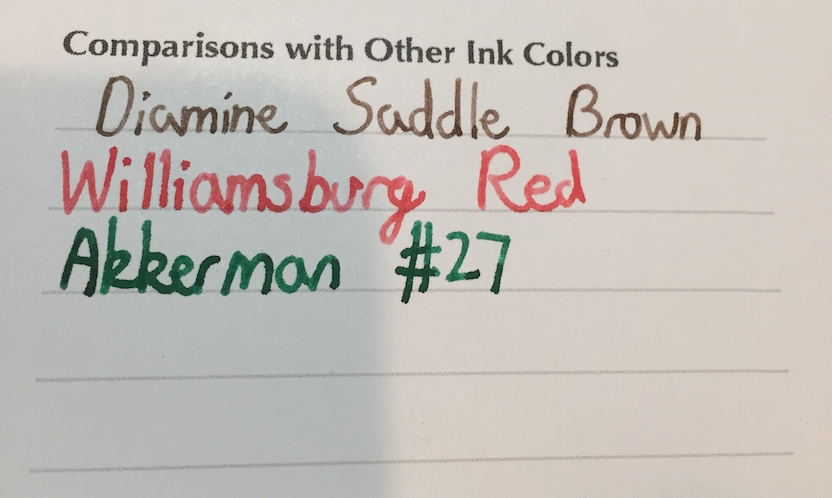 Comparisons with Other Ink Colors
Diamine Saddle Brown
Williamsburg Red
Akkerman #27